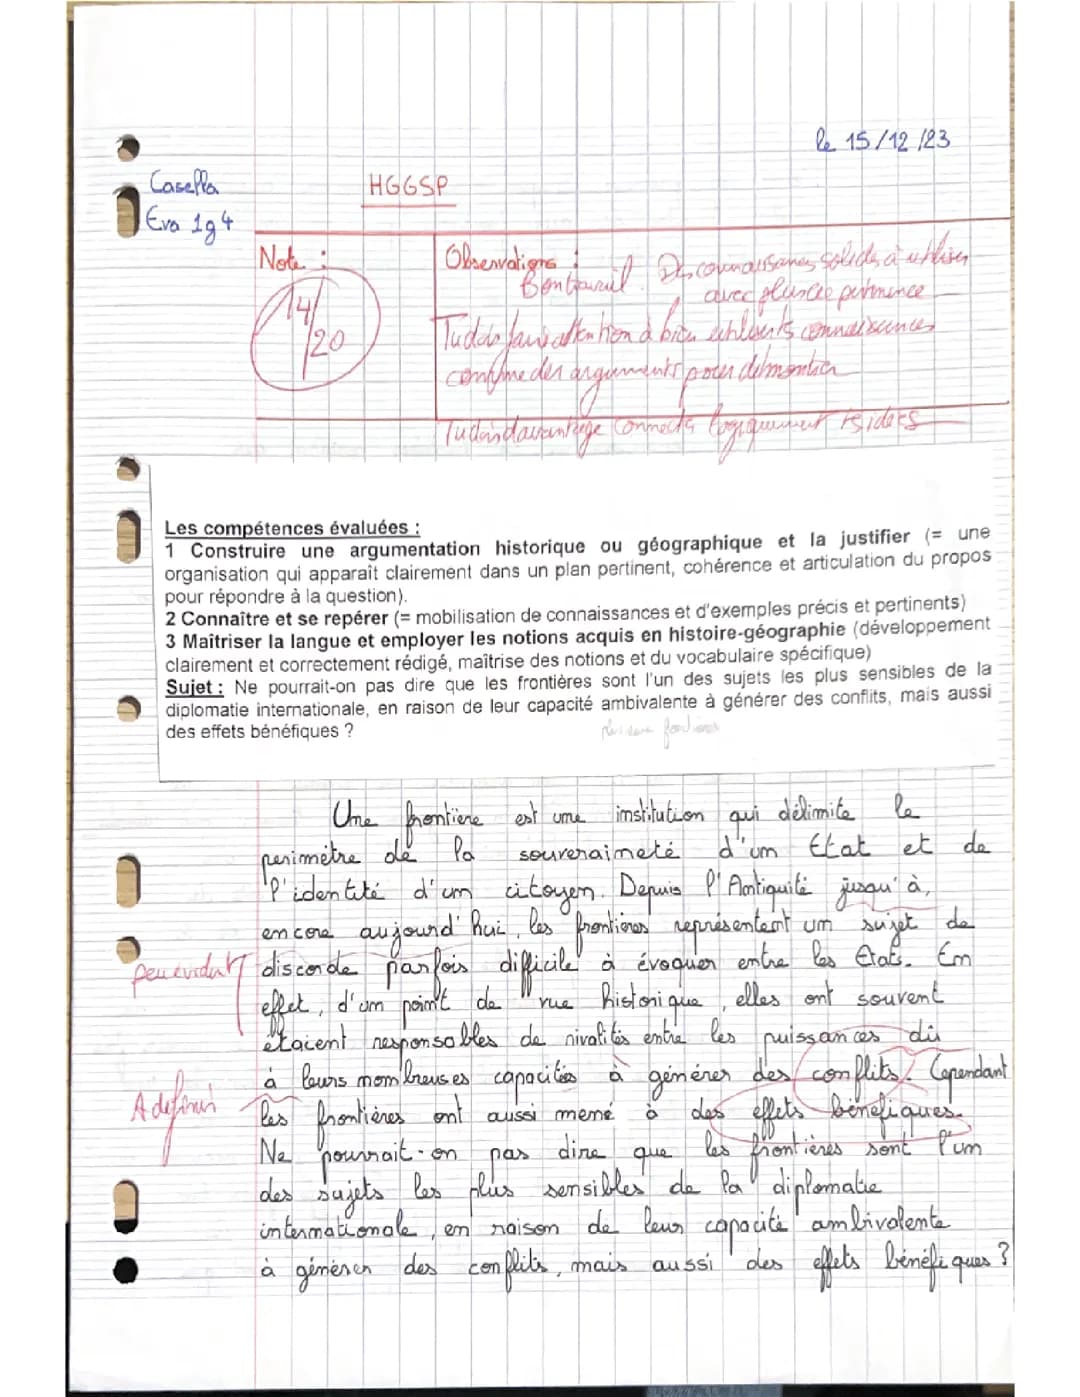 le 15/12/23
Casella
HGGSP
Eva 1g4
Note :
Observations :
14/20
Bon travail. Des connaissances solides à utiliser
avec plus de pertinence
Tu dois faire attention à bien utiliser ts connaissances
comme des arguments pour démontrer
Tu dois davantage connecter logiquement ts idées
Les compétences évaluées :
1 Construire une argumentation historique ou géographique et la justifier (= une
organisation qui apparaît clairement dans un plan pertinent, cohérence et articulation du propos
pour répondre à la question).
2 Connaître et se repérer (= mobilisation de connaissances et d'exemples précis et pertinents)
3 Maîtriser la langue et employer les notions acquis en histoire-géographie (développement
clairement et correctement rédigé, maîtrise des notions et du vocabulaire spécifique)
Sujet : Ne pourrait-on pas dire que les frontières sont l'un des sujets les plus sensibles de la
diplomatie internationale, en raison de leur capacité ambivalente à générer des conflits, mais aussi
des effets bénéfiques ?
Une frontière est une institution qui délimite le
perimètre de la souveraineté d'un Etat et de
l'identité d'un citoyen. Depuis l'Antiquité jusqu'à,
encore aujourd'hui, les frontières représentent un sujet de
peu évident
discorde parfois difficile à évoquer entre les Etats. En
effet, d'un point de vue historique, elles ont souvent
étaient responsables de rivalités entre les puissances dû
à leurs nombreuses capacités à générer des conflits. Cependant
A définir
les frontières ont aussi mené à des effets bénéfiques.
Ne pourrait-on pas dire que les frontières sont l'un
des sujets les plus sensibles de la diplomatie
internationale, en raison de leur capacité ambivalente
à générer des conflits, mais aussi des effets bénéfiques ?